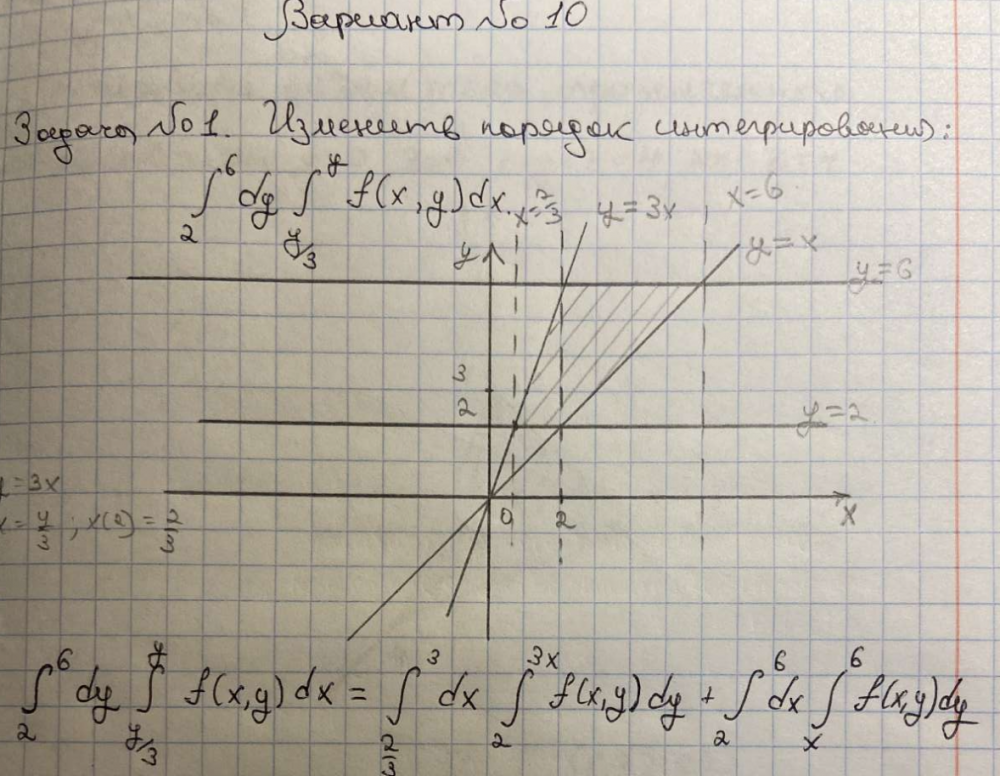 Вариант № 10
Задача № 1. Изменить порядок интегрирования:
∫₂⁶ dy ∫_{y/3}^{y} f(x,y)dx.
x=2/3 y=3x x=6
y y=x
y=6
3
2 y=2
y=3x
x=y/3; x(2)=2/3
0 2 x
∫₂⁶ dy ∫_{y/3}^{y} f(x,y)dx = ∫_{2/3}^{3} dx ∫_{2}^{3x} f(x,y)dy + ∫₂⁶ dx ∫_{x}^{6} f(x,y)dy